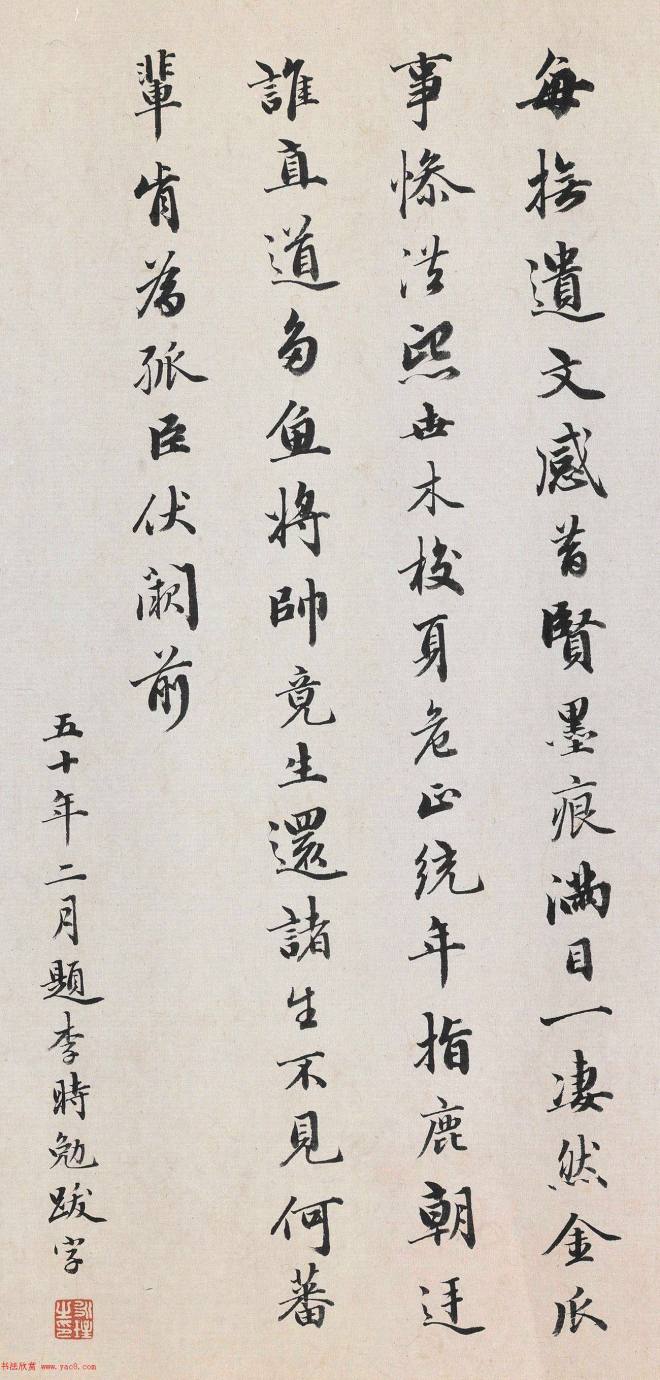 每遺文感昔賢墨痕滿目一凄然金瓜
事慘洪熙世木校身危正統年指鹿朝廷
誰直道多魚將帥竟生還諸生不見何蕃
輩肯為孤臣伏闕前
五十年二月題李時勉跋字
永瑆之印
书法欣赏 www.yac8.com